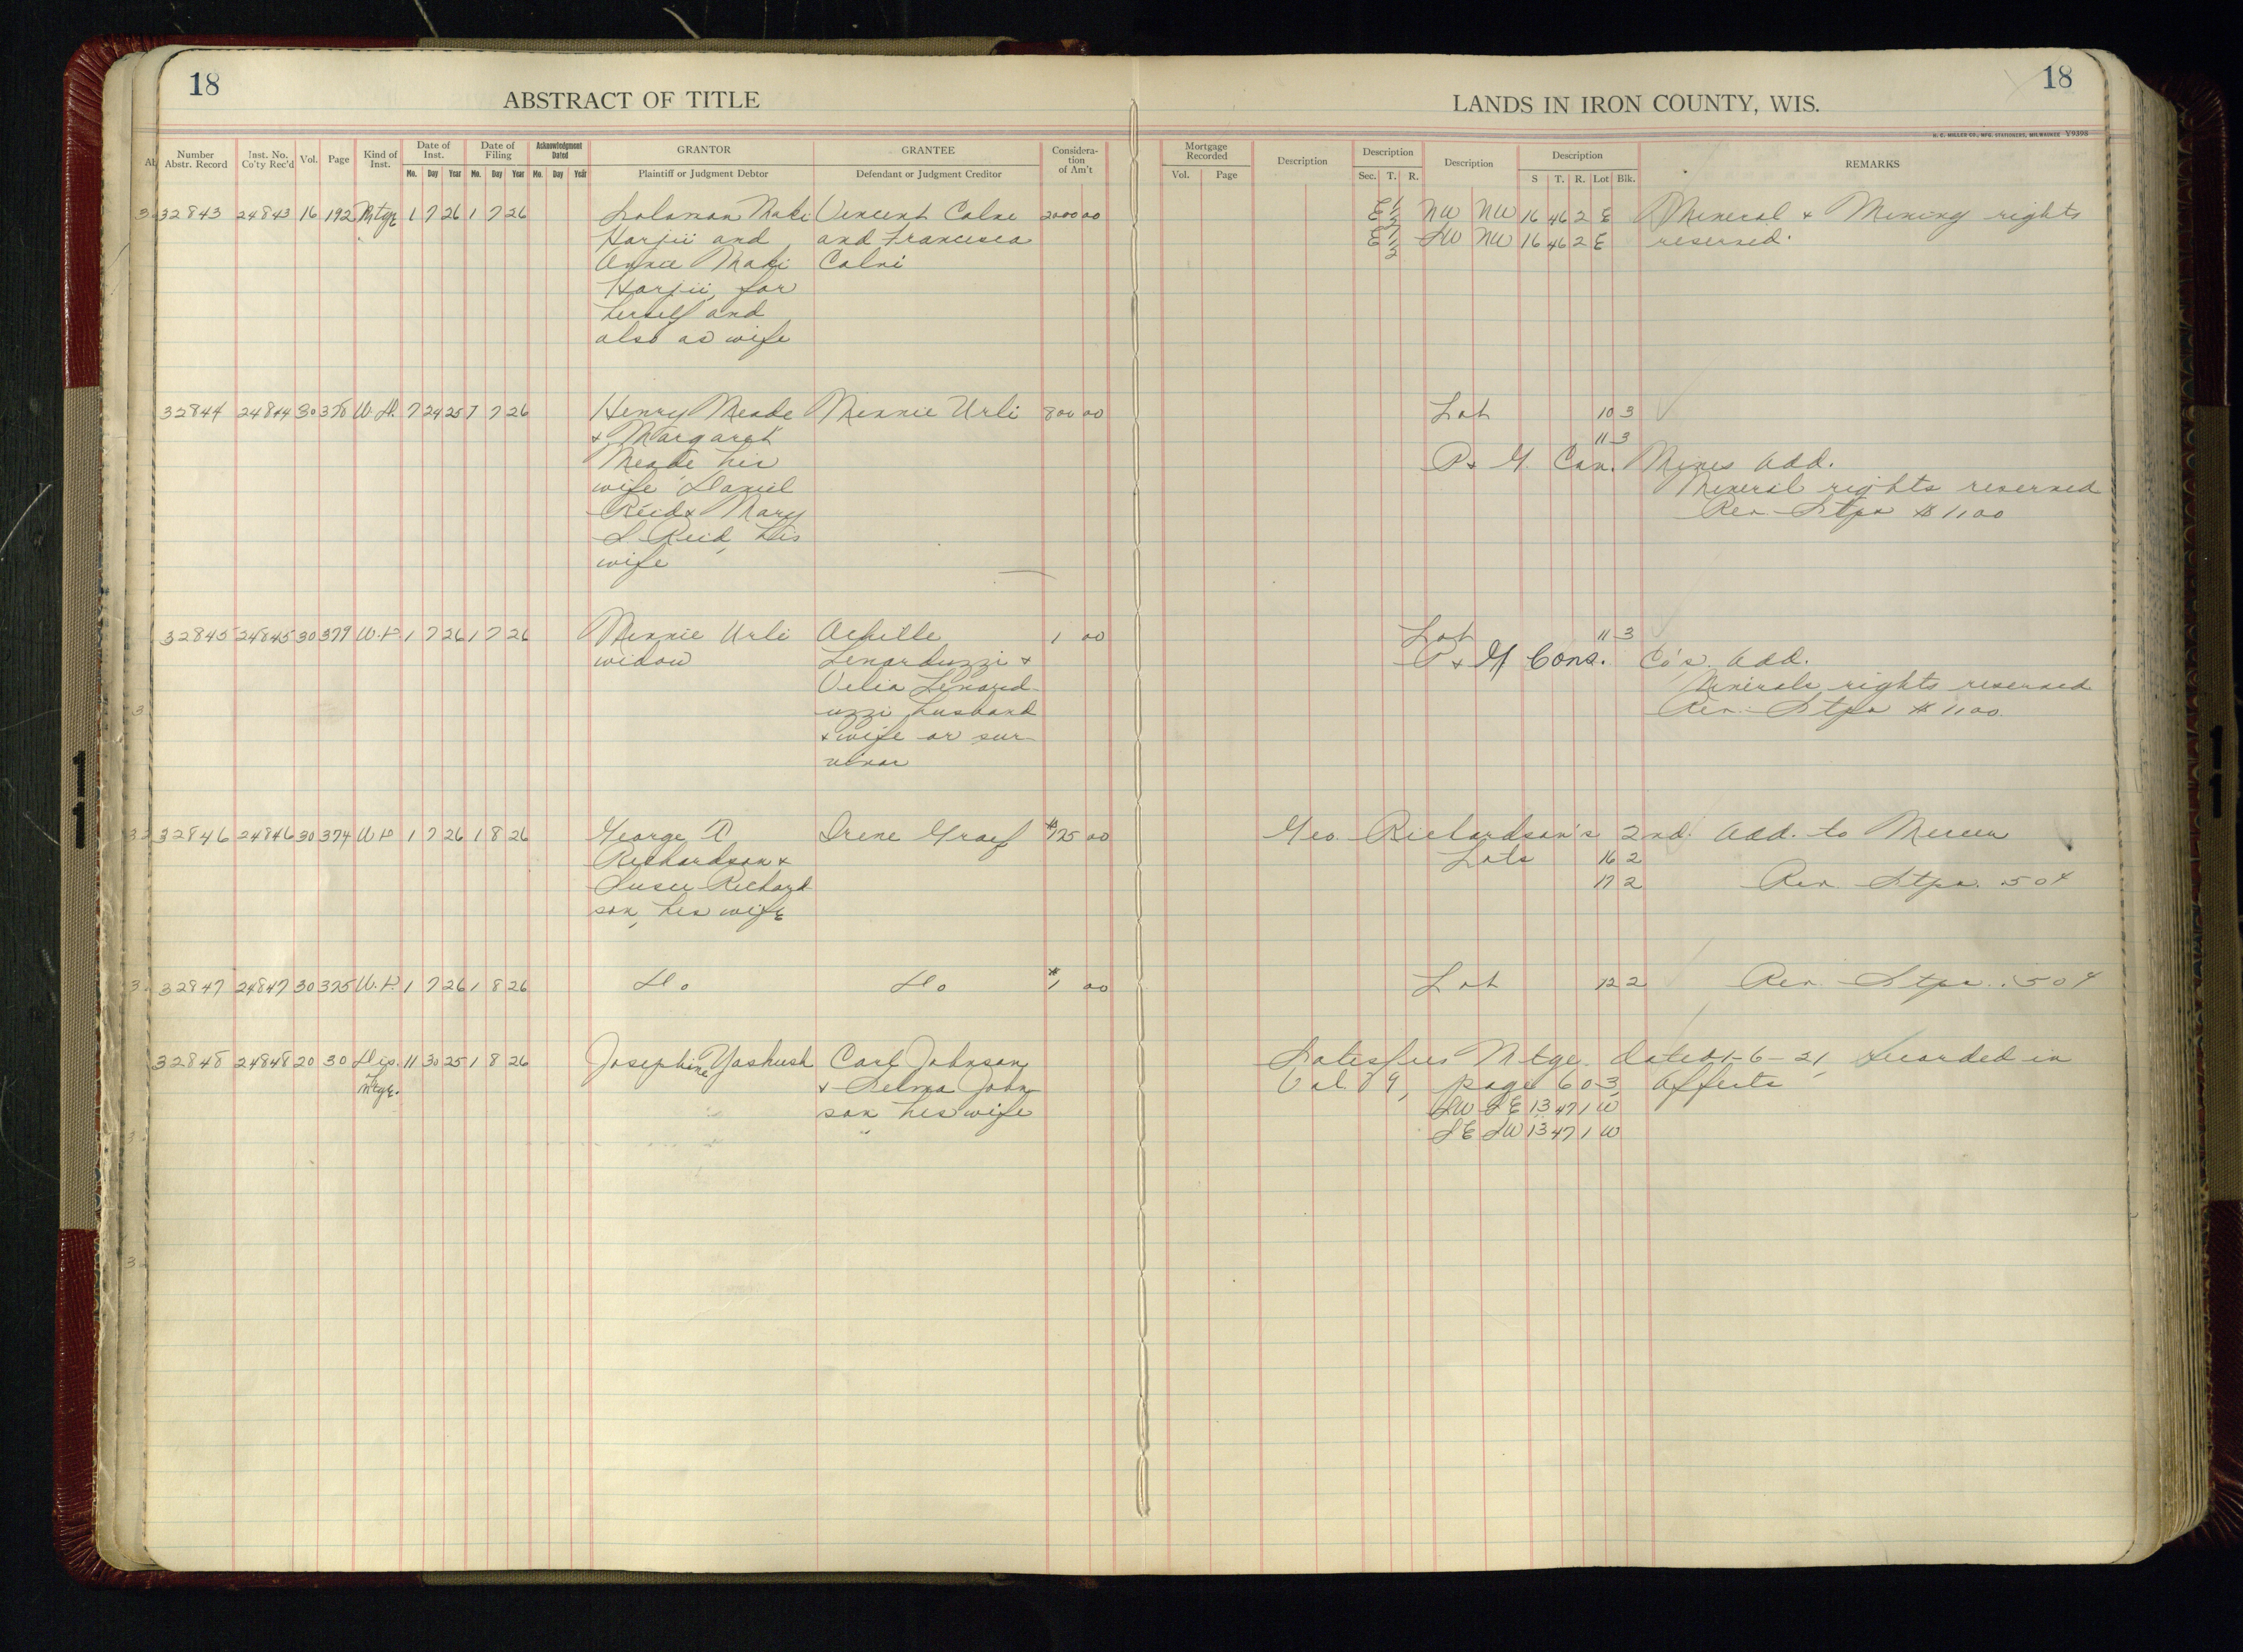 18
ABSTRACT OF TITLE
LANDS IN IRON COUNTY, WIS.
18
H. C. MILLER CO., MFG. STATIONERS, MILWAUKEE Y9398
Number Abstr. Record Inst. No. Co'ty Rec'd Vol. Page Kind of Inst. Date of Inst. Date of Filing Acknowledgment Dated GRANTOR GRANTEE Considera-tion of Am't Mortgage Recorded Description Description Description Description REMARKS
Mo. Day Year Mo. Day Year Mo. Day Year Plaintiff or Judgment Debtor Defendant or Judgment Creditor Vol. Page Sec. T. R. S T. R. Lot Blk.
32843 24843 16 192 Mtge 1 7 26 1 7 26 Solomon Maki Vincent Calvi 2000 00 E 1/2 NW NW 16 46 2 E Mineral & Mining rights
Harjii and and Francesca E 1/2 SW NW 16 46 2 E reserved.
Annie Maki Calvi
Harjii, for
herself and
also as wife
32844 24844 30 378 W. D. 7 24 25 7 7 26 Henry Meade Minnie Urli 800 00 Lot 10 3
& Margaret 11 3
Meade his P & G. Con. Mines Add.
wife Daniel Mineral rights reserved
Reid & Mary Rev. Stps $1.00
S. Reid, his
wife
32845 24845 30 379 W. D. 1 7 26 1 7 26 Minnie Urli Achille 1 00 Lot 11 3
widow Lenarduzzi & P & G Cons. Co's. Add.
Velia Lenard- Minerals rights reserved
uzzi husband Rev. Stps $1.00
& wife or sur-
vivor
32846 24846 30 374 W D 1 7 26 1 8 26 George Irene Graef $175 00 Geo. Richardson's 2nd. Add. to Mercer
Richardson & Lots 16 2
Susie Richard 17 2 Rev. Stps. 50¢
son, his wife
32847 24847 30 375 W. D. 1 7 26 1 8 26 Do Do $1 00 Lot 12 2 Rev. Stps. .50¢
32848 24848 20 30 Dis. 11 30 25 1 8 26 Josephine Yashush Carl Johnson Satisfies Mtge. dated 1-6-21, recorded in
Mtge. & Selma John Vol. 9, page 603, Affects
son his wife SW SE 13 47 1 W
SE SW 13 47 1 W